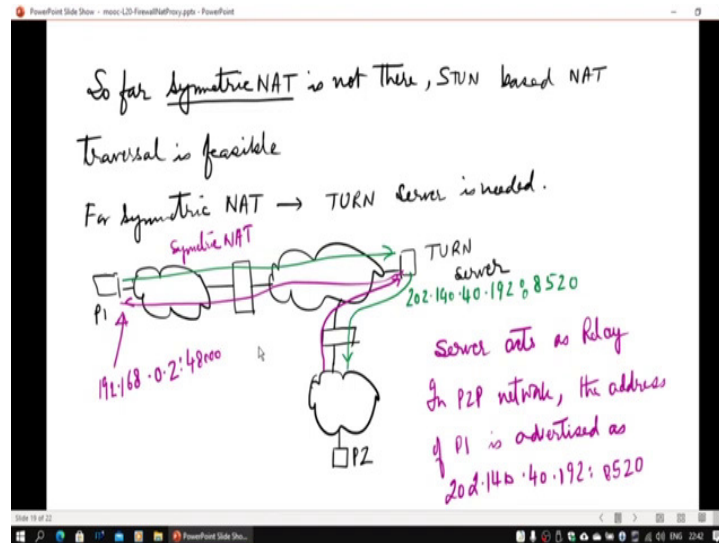 PowerPoint Slide Show - mooc-L20-FirewallNatProxy.pptx - PowerPoint
So far Symetric NAT is not there, STUN based NAT
Traversal is feasible
For Symmetric NAT → TURN Server is needed.
Symetric NAT
TURN
Server
P1
202.140.40.192:8520
192.168.0.2:48000
Server acts as Relay
In P2P network, the address
of P1 is advertised as
202.140.40.192:8520
P2
Slide 19 of 22
PowerPoint Slide Sho...
ENG
22:42